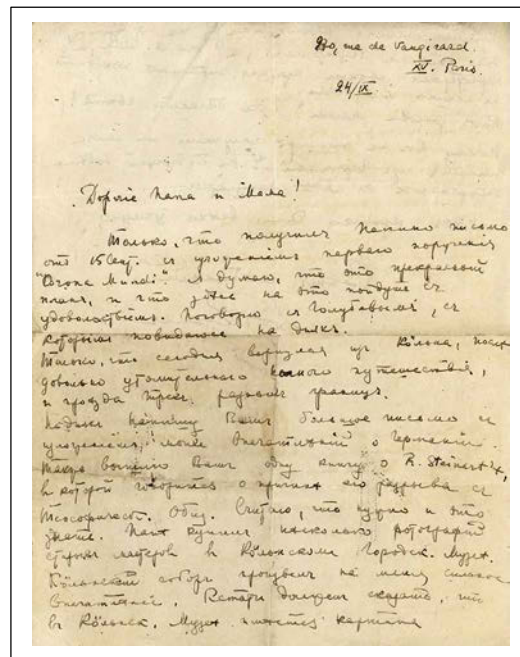 rue de Vaugirard.
XV. Paris.
24/IX
Дорогие Папа и Мама!
Только, что получилъ Папино письмо
отъ 15 Сент. съ первого поручения
"Corona Mundi". Я думаю, что это прекрасный
планъ, и что здесь на это пойдутъ съ
удовольствіемъ. Поговорю съ Голубевымъ, съ
которымъ повидаюсь на дняхъ.
Только, что сегодня вернулся изъ Кёльна, после
довольно утомительного ночного путешествія,
и проезда трехъ границъ.
Вамъ большое письмо съ
моихъ впечатленій о Германіи.
Также вышлю Вамъ одну книгу о R. Steiner'ѣ,
в которой говорится о причинах его разрыва съ
Теософическ. Общ. Считаю, что нужно и это
знать. Папе купилъ несколько фотографій
старыхъ мастеровъ в Кёльнскомъ Городск. Музее.
Кёльнскій соборъ произвелъ на меня сильное
впечатленіе. Кстати долженъ сказать, что
в Кёльнск. Музее имеется картина